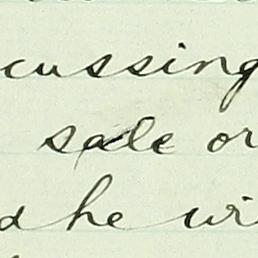 cussing
sale or
d he wi